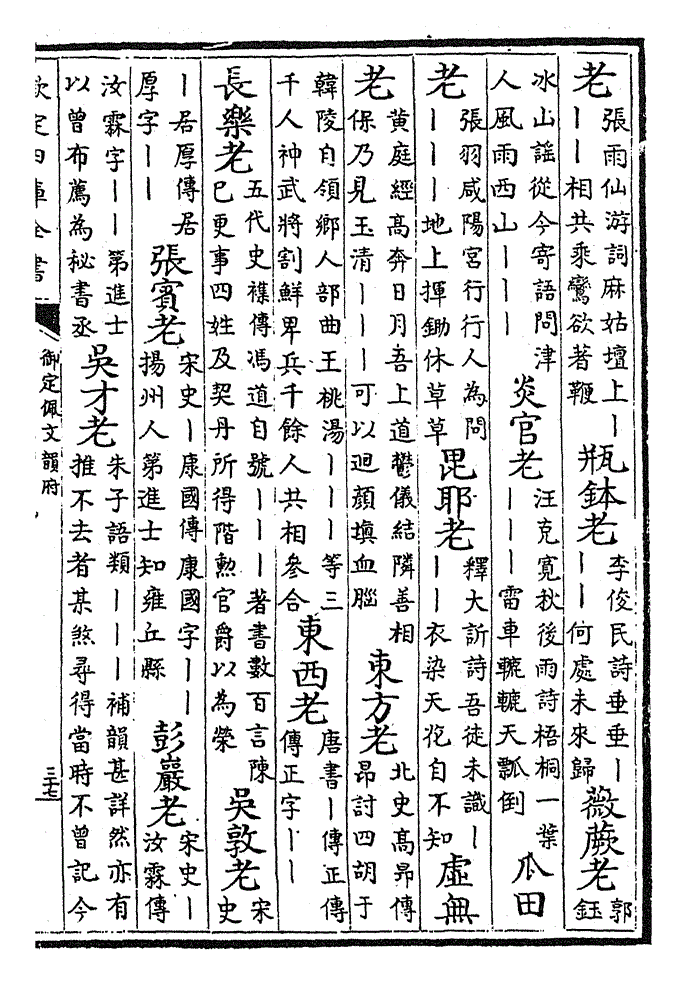 老 張雨仙游詞麻姑壇上丨丨丨相共乘鸞欲著鞭 瓶鉢老 李俊民詩垂垂丨丨丨何處未來歸 薇蕨老 郭鈺
冰山謠從今寄語問津人風雨西山丨丨丨 炎官老 汪克寬秋後雨詩梧桐一葉丨丨丨雷車轆轆天瓢倒 瓜田
老 張羽咸陽宮行行人為問丨丨丨地上揮鋤休草草 毘耶老 釋大訢詩吾徒未識丨丨丨衣染天花自不知 虛無
老 黃庭經高奔日月吾上道鬱儀結隣善相保乃見玉清丨丨丨可以迴顏填血腦 東方老 北史高昂傳昂討四胡于
韓陵自領鄉人部曲王桃湯丨丨丨等三千人神武將割鮮卑兵千餘人共相參合 東西老 唐書丨傳正傳傳正字丨丨
長樂老 五代史襍傳馮道自號丨丨丨著書數百言陳已更事四姓及契丹所得階勲官爵以為榮 吳敦老 宋史
丨居厚傳居厚字丨丨 張賓老 宋史丨康國傳康國字丨丨揚州人第進士知雍丘縣 彭巖老 宋史丨汝霖傳
汝霖字丨丨第進士以曾布薦為秘書丞 吳才老 朱子語類丨丨丨補韻甚詳然亦有推不去者某煞尋得當時不曾記今
欽定四庫全書
御定佩文韻府
三十七